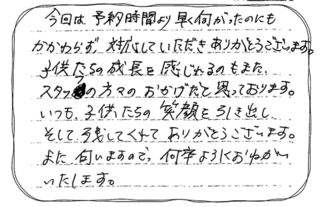 今回は予約時間より早く伺がったのにも
かかわらず、対応していただきありがとうございます。
子供たちの成長を感じれるのもまた、
スタッフの方々のおかげだと思っております。
いつも、子供たちの笑顔を引き出し
そして残してくれてありがとうございます。
また伺いますので、何卒よろしくおねがい
いたします。